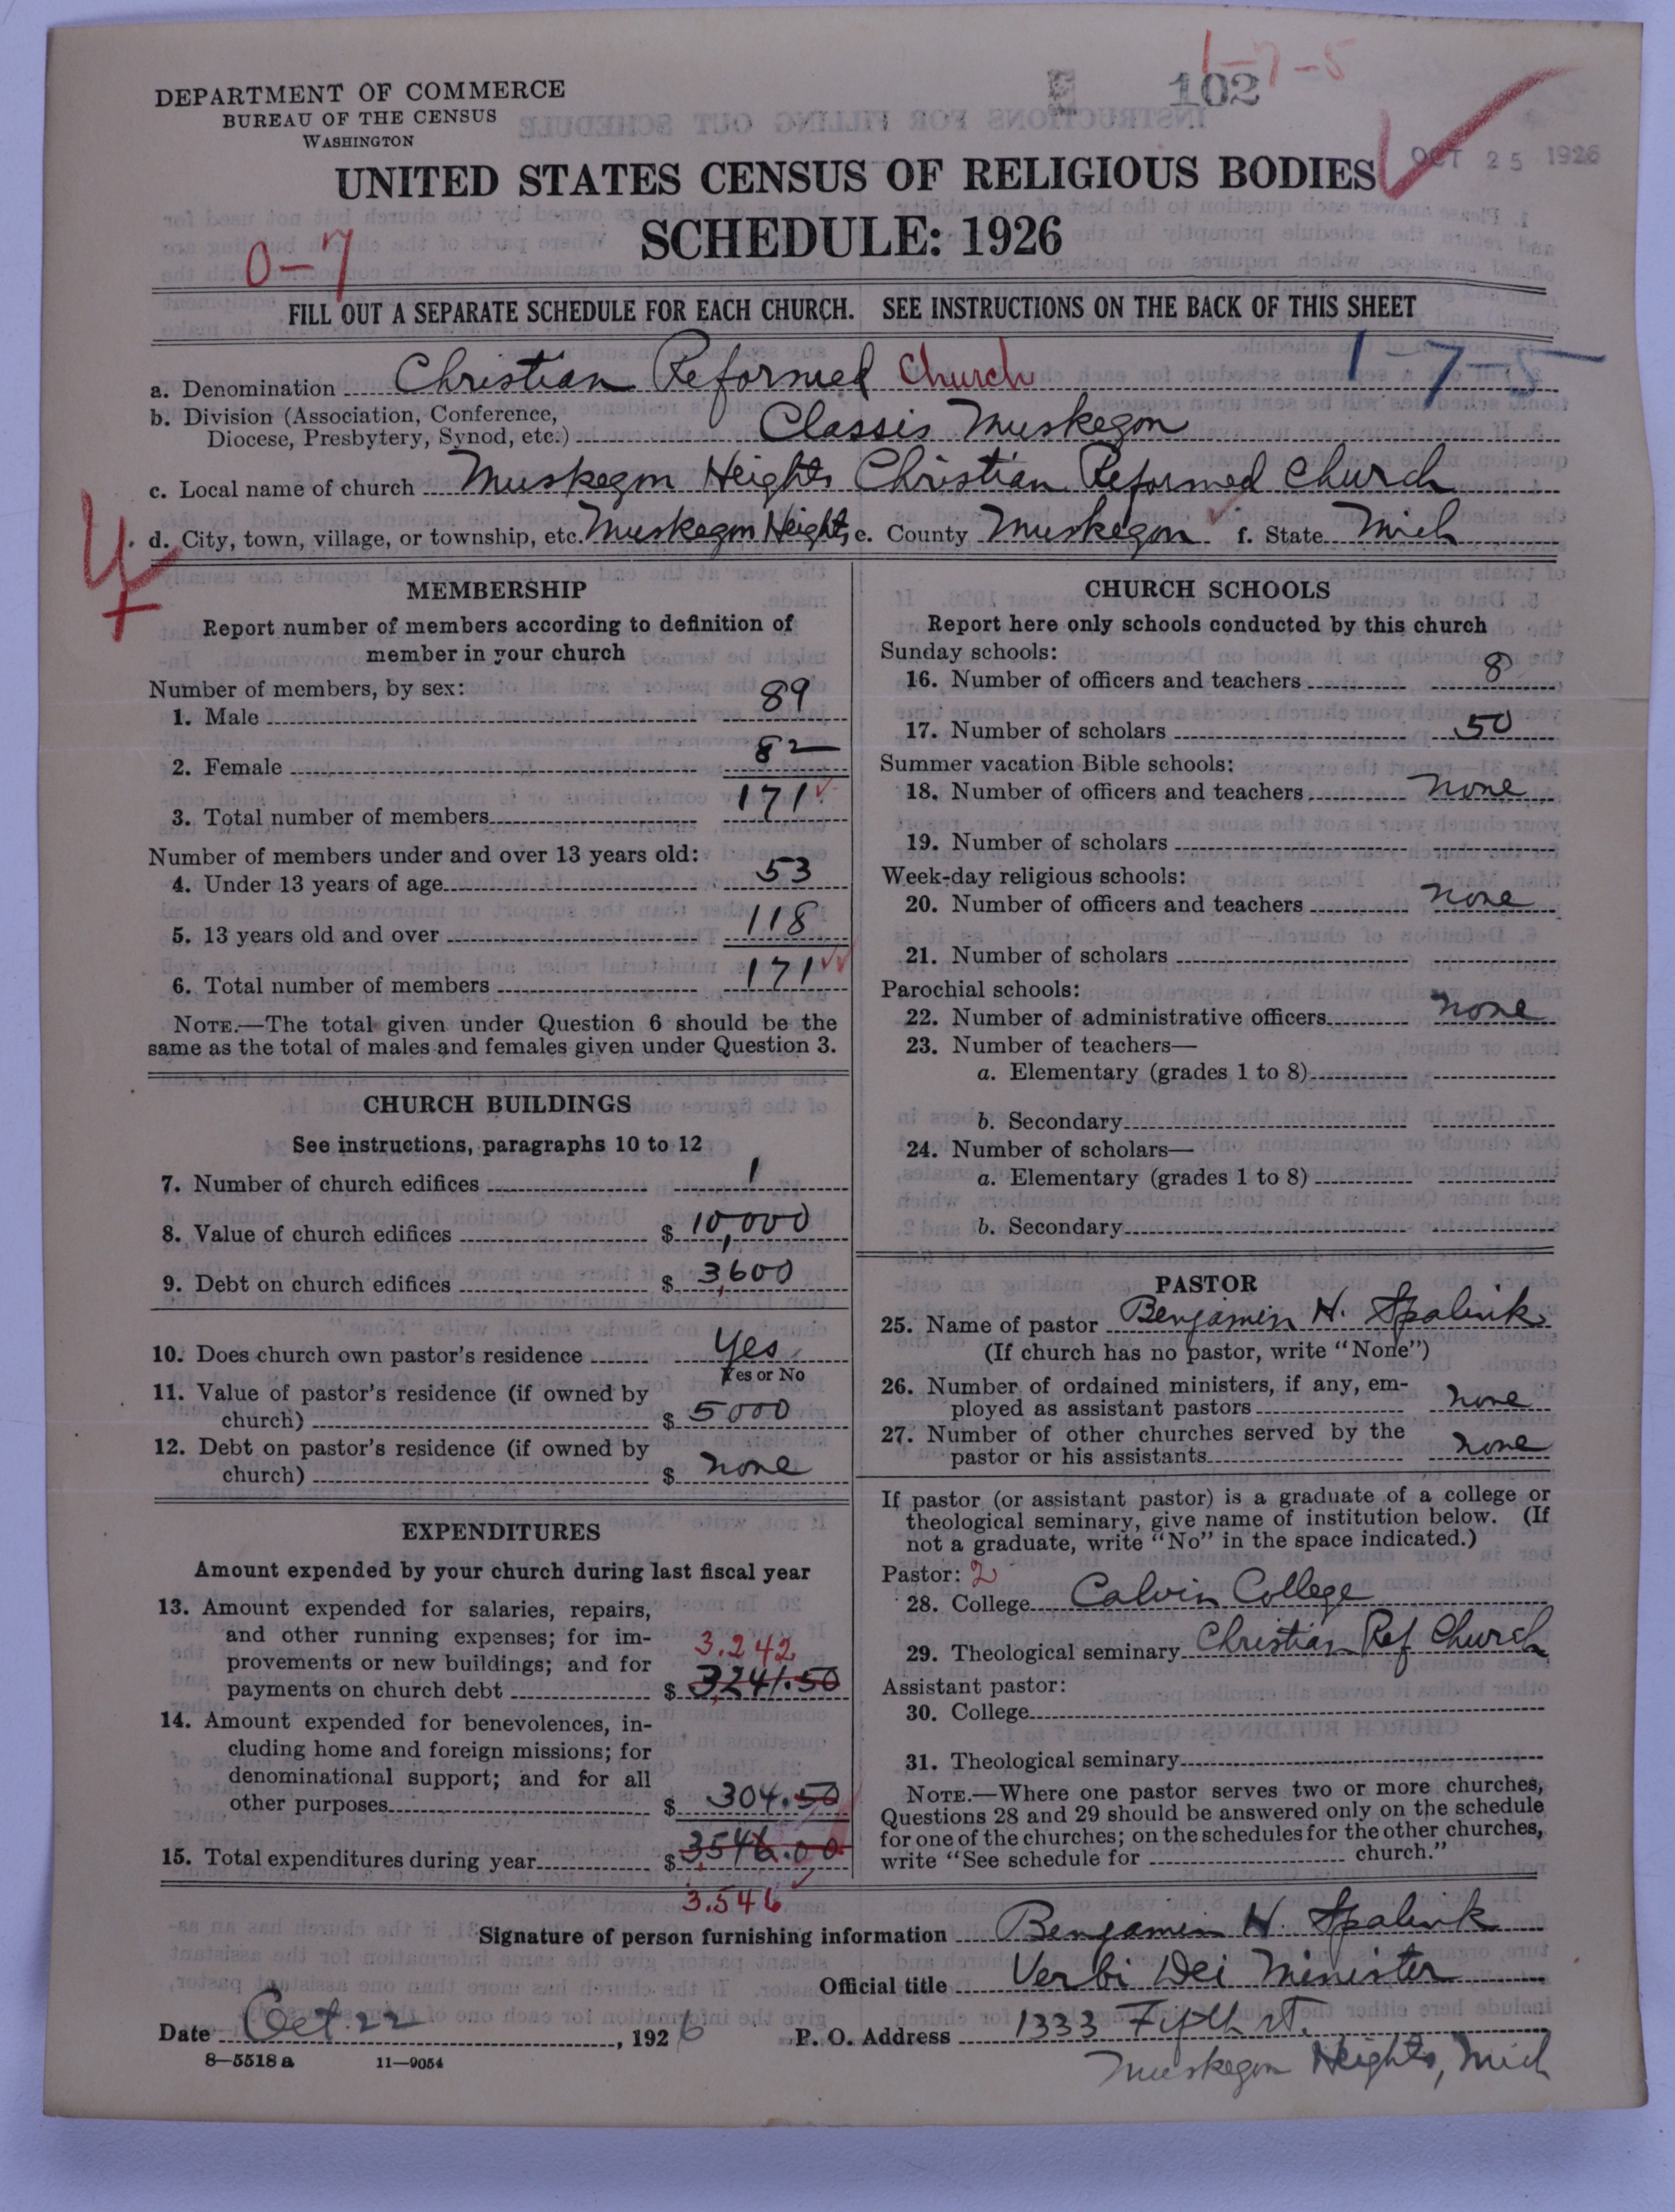 1-7-5
102
DEPARTMENT OF COMMERCE
BUREAU OF THE CENSUS
WASHINGTON
OCT 25 1926
UNITED STATES CENSUS OF RELIGIOUS BODIES
SCHEDULE: 1926
0-7
FILL OUT A SEPARATE SCHEDULE FOR EACH CHURCH. SEE INSTRUCTIONS ON THE BACK OF THIS SHEET
1-7-5
a. Denomination Christian Reformed Church
b. Division (Association, Conference,
Diocese, Presbytery, Synod, etc.) Classis Muskegon
c. Local name of church Muskegon Heights Christian Reformed Church
d. City, town, village, or township, etc. Muskegon Heights e. County Muskegon f. State Mich
MEMBERSHIP
Report number of members according to definition of
member in your church
Number of members, by sex:
1. Male 89
2. Female 82
3. Total number of members 171
Number of members under and over 13 years old:
4. Under 13 years of age 53
5. 13 years old and over 118
6. Total number of members 171
NOTE.—The total given under Question 6 should be the
same as the total of males and females given under Question 3.
CHURCH BUILDINGS
See instructions, paragraphs 10 to 12
7. Number of church edifices 1
8. Value of church edifices $ 10,000
9. Debt on church edifices $ 3,600
10. Does church own pastor's residence Yes
Yes or No
11. Value of pastor's residence (if owned by
church) $ 5000
12. Debt on pastor's residence (if owned by
church) $ none
EXPENDITURES
Amount expended by your church during last fiscal year
13. Amount expended for salaries, repairs,
and other running expenses; for im-
provements or new buildings; and for 3.242
payments on church debt $ 3,241.50
14. Amount expended for benevolences, in-
cluding home and foreign missions; for
denominational support; and for all
other purposes $ 304.50
15. Total expenditures during year $ 3,546.00
3.546
CHURCH SCHOOLS
Report here only schools conducted by this church
Sunday schools:
16. Number of officers and teachers 8
17. Number of scholars 50
Summer vacation Bible schools:
18. Number of officers and teachers none
19. Number of scholars
Week-day religious schools:
20. Number of officers and teachers none
21. Number of scholars
Parochial schools:
22. Number of administrative officers none
23. Number of teachers—
a. Elementary (grades 1 to 8)
b. Secondary
24. Number of scholars—
a. Elementary (grades 1 to 8)
b. Secondary
PASTOR
25. Name of pastor Benjamin H. Spalink
(If church has no pastor, write "None")
26. Number of ordained ministers, if any, em-
ployed as assistant pastors none
27. Number of other churches served by the
pastor or his assistants none
If pastor (or assistant pastor) is a graduate of a college or
theological seminary, give name of institution below. (If
not a graduate, write "No" in the space indicated.)
Pastor: 2
28. College Calvin College
29. Theological seminary Christian Ref Church
Assistant pastor:
30. College
31. Theological seminary
NOTE.—Where one pastor serves two or more churches,
Questions 28 and 29 should be answered only on the schedule
for one of the churches; on the schedules for the other churches,
write "See schedule for church."
Signature of person furnishing information Benjamin H. Spalink
Official title Verbi Dei Minister
Date Oct. 22, 1926 P. O. Address 1333 Fifth St.
Muskegon Heights, Mich
8-5518 a 11-9054